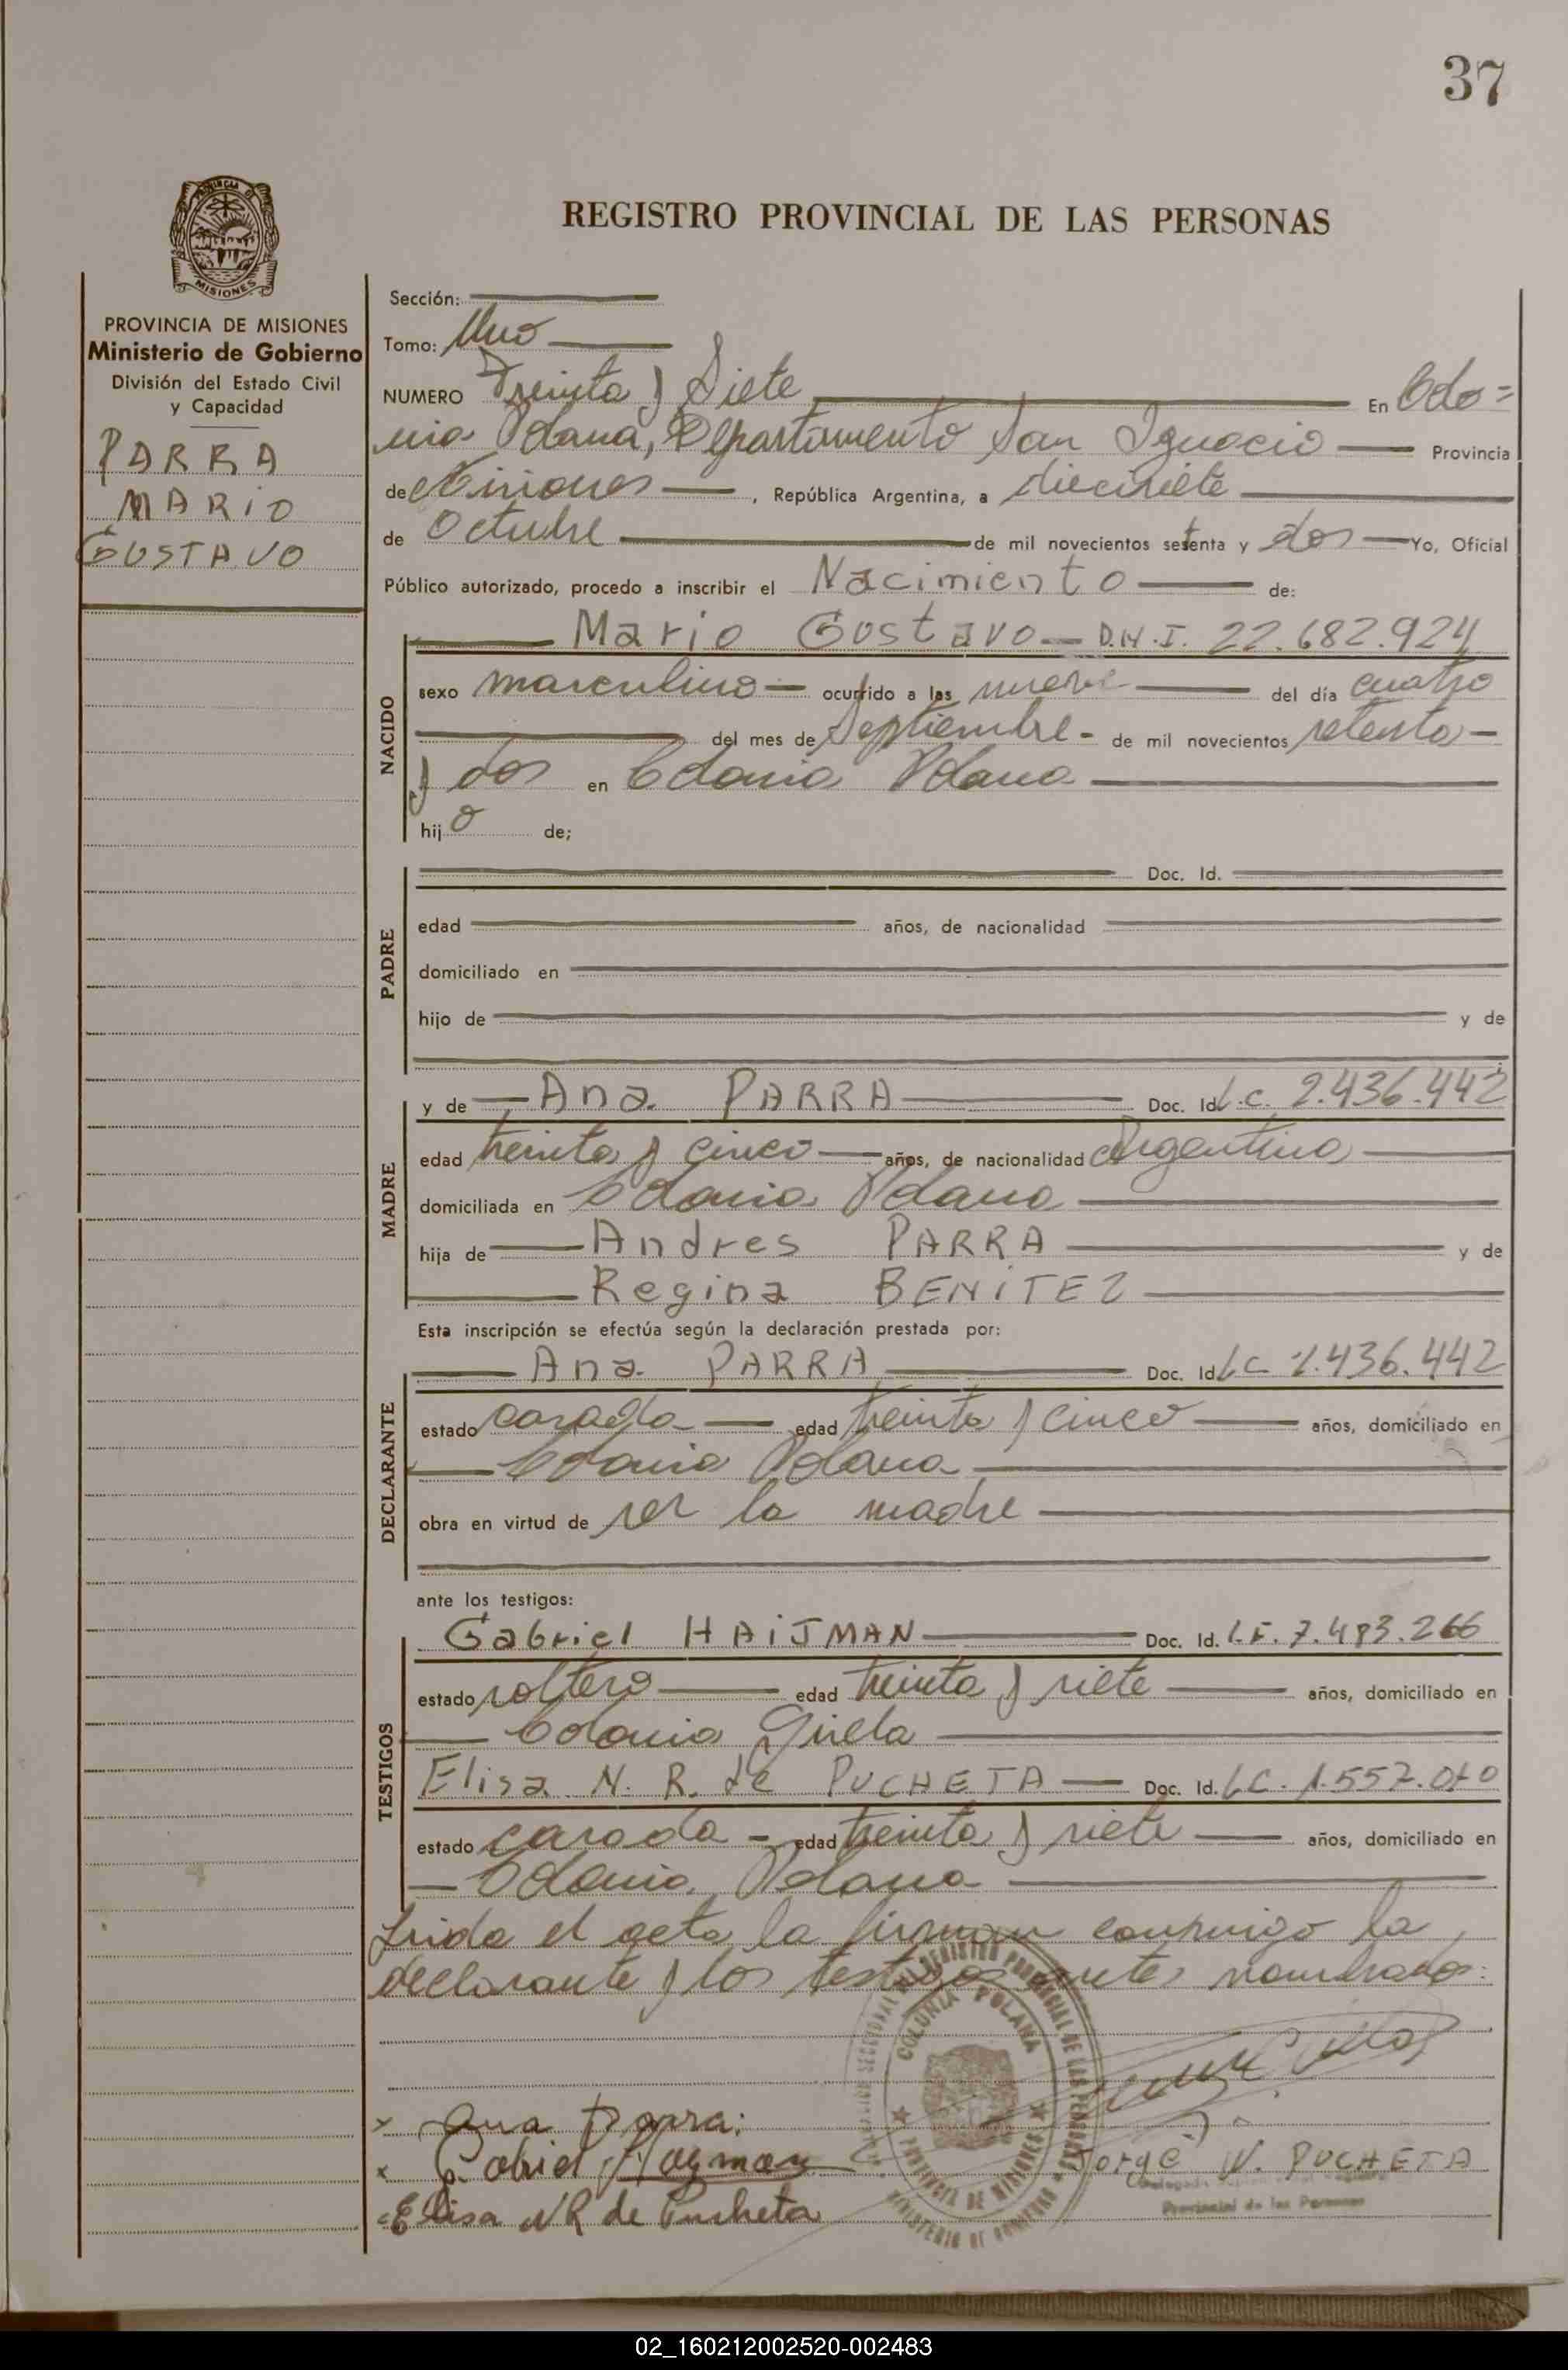 37
PROVINCIA DE MISIONES
REGISTRO PROVINCIAL DE LAS PERSONAS
PROVINCIA DE MISIONES
Ministerio de Gobierno
División del Estado Civil
y Capacidad
PARRA
MARIO
GUSTAVO
Sección:
Tomo: Uno
NUMERO Treinta y Siete En Colo=
nia Polana, Departamento San Ignacio Provincia
de Misiones, República Argentina, a diecisiete
de Octubre de mil novecientos setenta y dos Yo, Oficial
Público autorizado, procedo a inscribir el Nacimiento de:
NACIDO
Mario Gustavo D.N.I. 22.682.924
sexo masculino ocurrido a las nueve del día cuatro
del mes de Septiembre de mil novecientos setenta
y dos en Colonia Polana
hijo de;
PADRE
Doc. Id.
edad años, de nacionalidad
domiciliado en
hijo de y de
MADRE
y de Ana PARRA Doc. Id. L.C. 2.436.442
edad treinta y cinco años, de nacionalidad Argentina
domiciliada en Colonia Polana
hija de Andres PARRA y de
Regina BENITEZ
Esta inscripción se efectúa según la declaración prestada por:
DECLARANTE
Ana PARRA Doc. Id. LC 2.436.442
estado casada edad treinta y cinco años, domiciliado en
Colonia Polana
obra en virtud de ser la madre
ante los testigos:
TESTIGOS
Gabriel HAIJMAN Doc. Id. L.E. 7.483.266
estado soltero edad treinta y siete años, domiciliado en
Colonia Gisela
Elisa N. R. de PUCHETA Doc. Id. LC. 1.557.010
estado casada edad treinta y siete años, domiciliado en
Colonia Polana
Leida el acta la firman conmigo la
declarante y los testigos antes nombrados:
COLONIA POLANA
PROVINCIA DE MISIONES
x Ana Parra:
x Gabriel Hayman
Jorge V. PUCHETA
Elisa NR de Pucheta
Provincial de las Personas
02_160212002520-002483